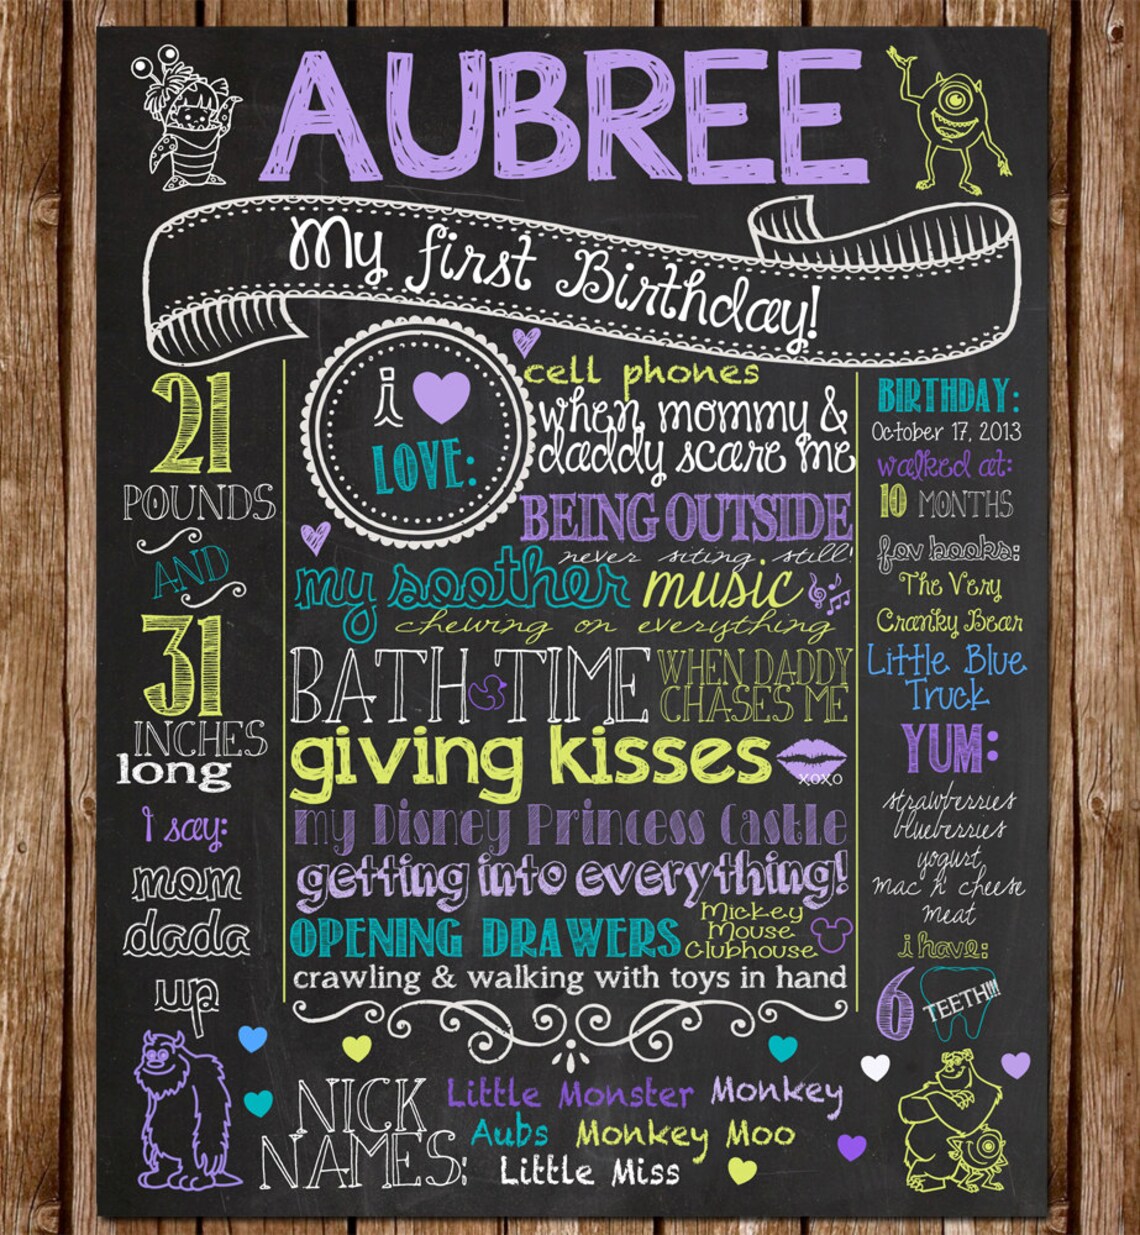 AUBREE
My first Birthday!
21
POUNDS
AND
31
INCHES
long
I say:
mom
dada
up
i
LOVE:
cell phones
when mommy &
daddy scare me
BEING OUTSIDE
never siting still!
my soother music
chewing on everything
BATH TIME
WHEN DADDY
CHASES ME
giving kisses
xoxo
my Disney Princess Castle
getting into everything!
OPENING DRAWERS
Mickey
Mouse
Clubhouse
crawling & walking with toys in hand
BIRTHDAY:
October 17, 2013
walked at:
10 MONTHS
fav books:
The Very
Cranky Bear
Little Blue
Truck
YUM:
strawberries
blueberries
yogurt
mac n' cheese
meat
i have:
6 TEETH!!!
NICK
NAMES:
Little Monster Monkey
Aubs Monkey Moo
Little Miss